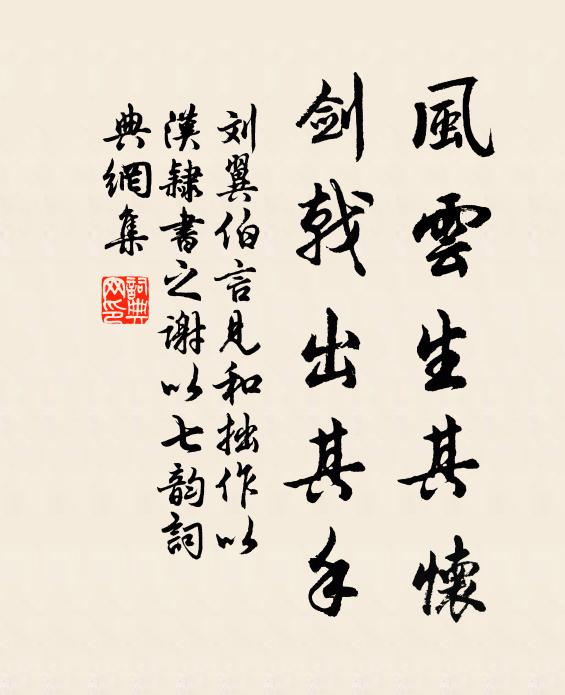 風雲生其懷
劍戟出其手
刘翼伯言見和拙作以
漢隸書之謝以七韵詞
典網集
詞典
网印